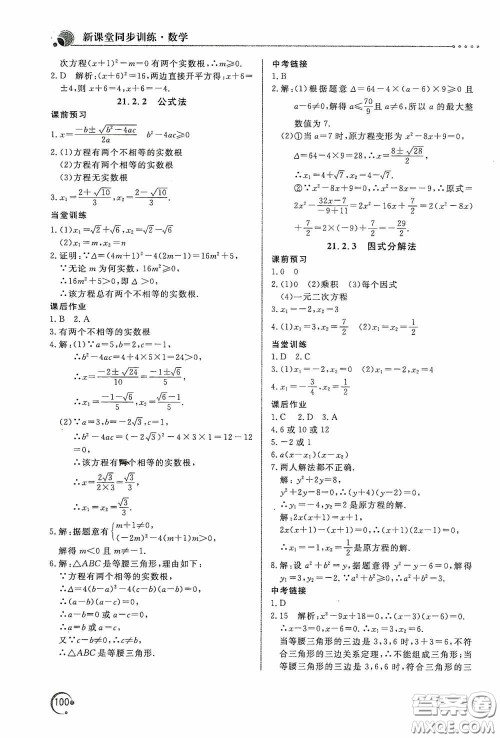 新课堂同步训练·数学
次方程(x+1)²-m=0有两个实数根，∴m≥0.
2.D 解析：(x+6)²=16，两边直接开平方得：x+6=
±4，则x+6=4，x+6=-4.
21.2.2 公式法
课前预习
1.x=(-b±√(b²-4ac))/2a b²-4ac≥0
2.(1)方程有两个不相等的实数根
(2)方程有两个相等的实数根
(3)方程无实数根
3.x₁=(2+√10)/3，x₂=(2-√10)/3.
当堂训练
1.(1)x₁=√2+√6，x₂=√2-√6.
(2)x₁=m，x₂=n.
2.证明：∵Δ=(4m+1)²-4(2m-1)=16m²+5.
∵无论m为何实数，16m²≥0.
∴16m²+5>0，即Δ>0.
∴该方程总有两个不相等的实数根.
课后作业
1.B 2.A
3.有两个不相等的实数根
4.解：(1)∵a=5，b=2，c=-1.
∴b²-4ac=4+4×5×1=24>0
∴x=(-2±√24)/10=(-1±√6)/5.
∴x₁=(-1-√6)/5，x₂=(-1+√6)/5.
(2)∵a=3，b=-2√3，c=1.
∴b²-4ac=(-2√3)²-4×3×1=12-12
=0.
∴该方程有两个相等的实数根.
∴x=2√3/(2×3)=√3/3.
∴x₁=x₂=√3/3.
5.解：据题意有{m+1≠0，(-2m)²-4m(m+1)>0.
解得m<0且m≠-1.
6.解：△ABC是等腰三角形，理由如下：
∵方程有两个相等的实数根，
∴Δ=4(a-b)²-4(c-b)(a-b)=0.
∴4(a-b)(a-c)=0.
∴a-b=0或a-c=0.
又∵c-b≠0，∴c≠b.
∴△ABC是等腰三角形.
中考链接
1.B
2.解：(1)根据题意Δ=64-4×(a-6)×9≥0且
a-6≠0，解得a≤70/9且a≠6，所以a的最大整
数值为7.
(2)①当a=7时，原方程变形为x²-8x+9=0.
∵Δ=64-4×9=28，∴x=(8±√28)/2.
∴x₁=4+√7，x₂=4-√7.
②∵x²-8x+9=0，∴x²-8x=-9，∴原式=
2x²-(32x-7)/(-9+11)=2x²-16x+7/2=2(x²-8x)+
7/2=2×(-9)+7/2=-29/2.
21.2.3 因式分解法
课前预习
1.0 0
2.(1)0 (2)乘积 (3)每个因式
(4)一元二次方程
3.x₁=-2，x₂=3
4.(1)x₁=3，x₂=7/2 (2)x₁=-2，x₂=4
当堂训练
1.D 2.C
4.x₁=-3/4，x₂=1/2
课后作业
1.C 2.D 3.A
4.6或10或12
5.-2或1
6.a(x-x₁)(x-x₂)
7.两人解法都不正确.
解：y²+2y=8，
y²+2y-8=0，∴(y+4)(y-2)=0，
∴y₁=-4，y₂=2是原方程的解.
解：2x(x+1)=x+1，
2x(x+1)-(x+1)=0，∴(2x-1)(x+1)=0，
∴x₁=1/2，x₂=-1是原方程的解.
8.解：设a²+b²=y，据题意得y²-y-6=0，解得
y₁=3，y₂=-2，∵a²+b²≥0，∴a²+b²=3.
中考链接
1.D
2.15 解析：x²-9x+18=0，∴(x-3)(x-6)=0.
∴x-3=0，x-6=0.∴x₁=3，x₂=6.
当等腰三角形的三边是3,3,6时，3+3=6，不符
合三角形的三边关系定理，∴不能组成三角形；
当等腰三角形的三边是3,6,6时，符合三角形三
100